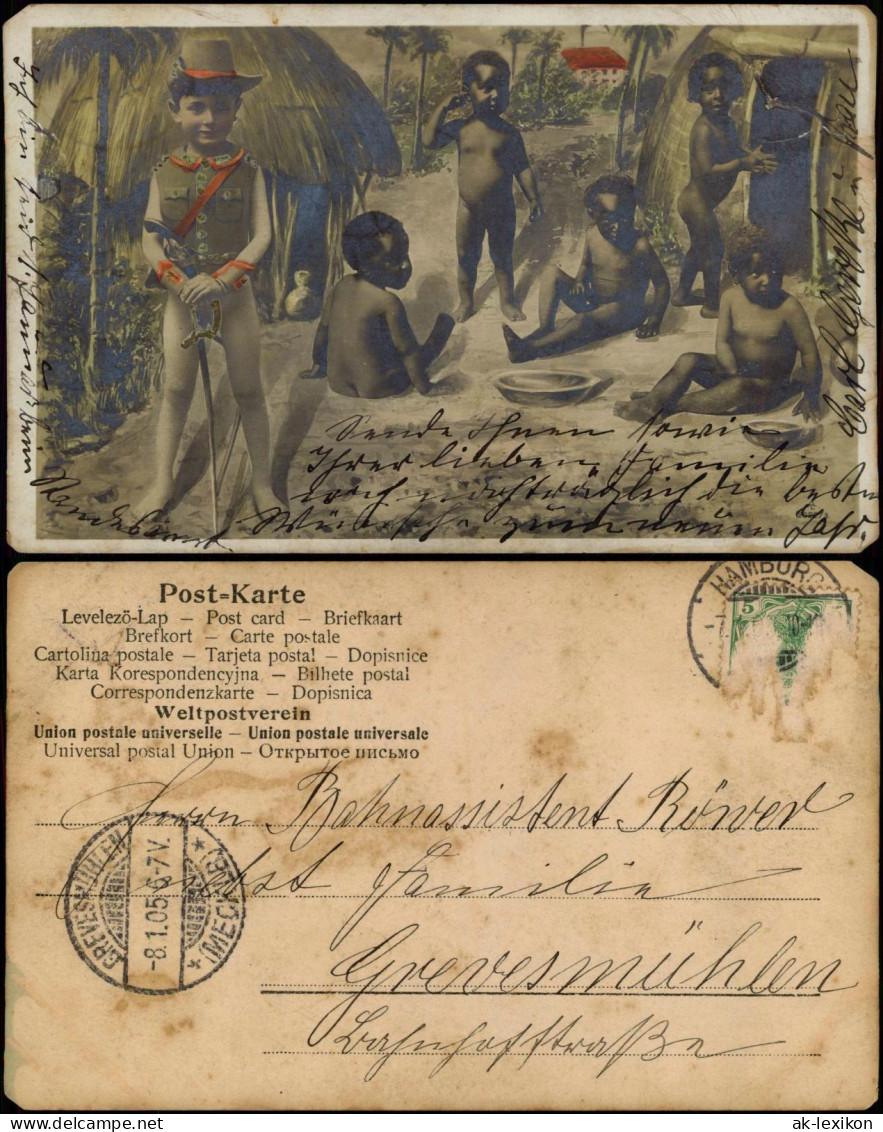 Sende Ihnen sowie
Ihrer lieben Familie
noch nachträglich die besten
Wünsche zum neuen Jahr.
Carl u. Frau
Post=Karte
Levelező-Lap – Post card – Briefkaart
Brefkort – Carte postale
Cartolina postale – Tarjeta postal – Dopisnice
Karta Korespondencyjna – Bilhete postal
Correspondenzkarte – Dopisnica
Weltpostverein
Union postale universelle – Union postale universale
Universal postal Union – Открытое письмо
HAMBURG
5
Herrn Bahnassistent Röwer
nebst Familie
Grevesmühlen
Bahnhofstraße
GREVESMÜHLEN
-8.1.05.6-7V.
* (MECKLB) *
ak-lexikon